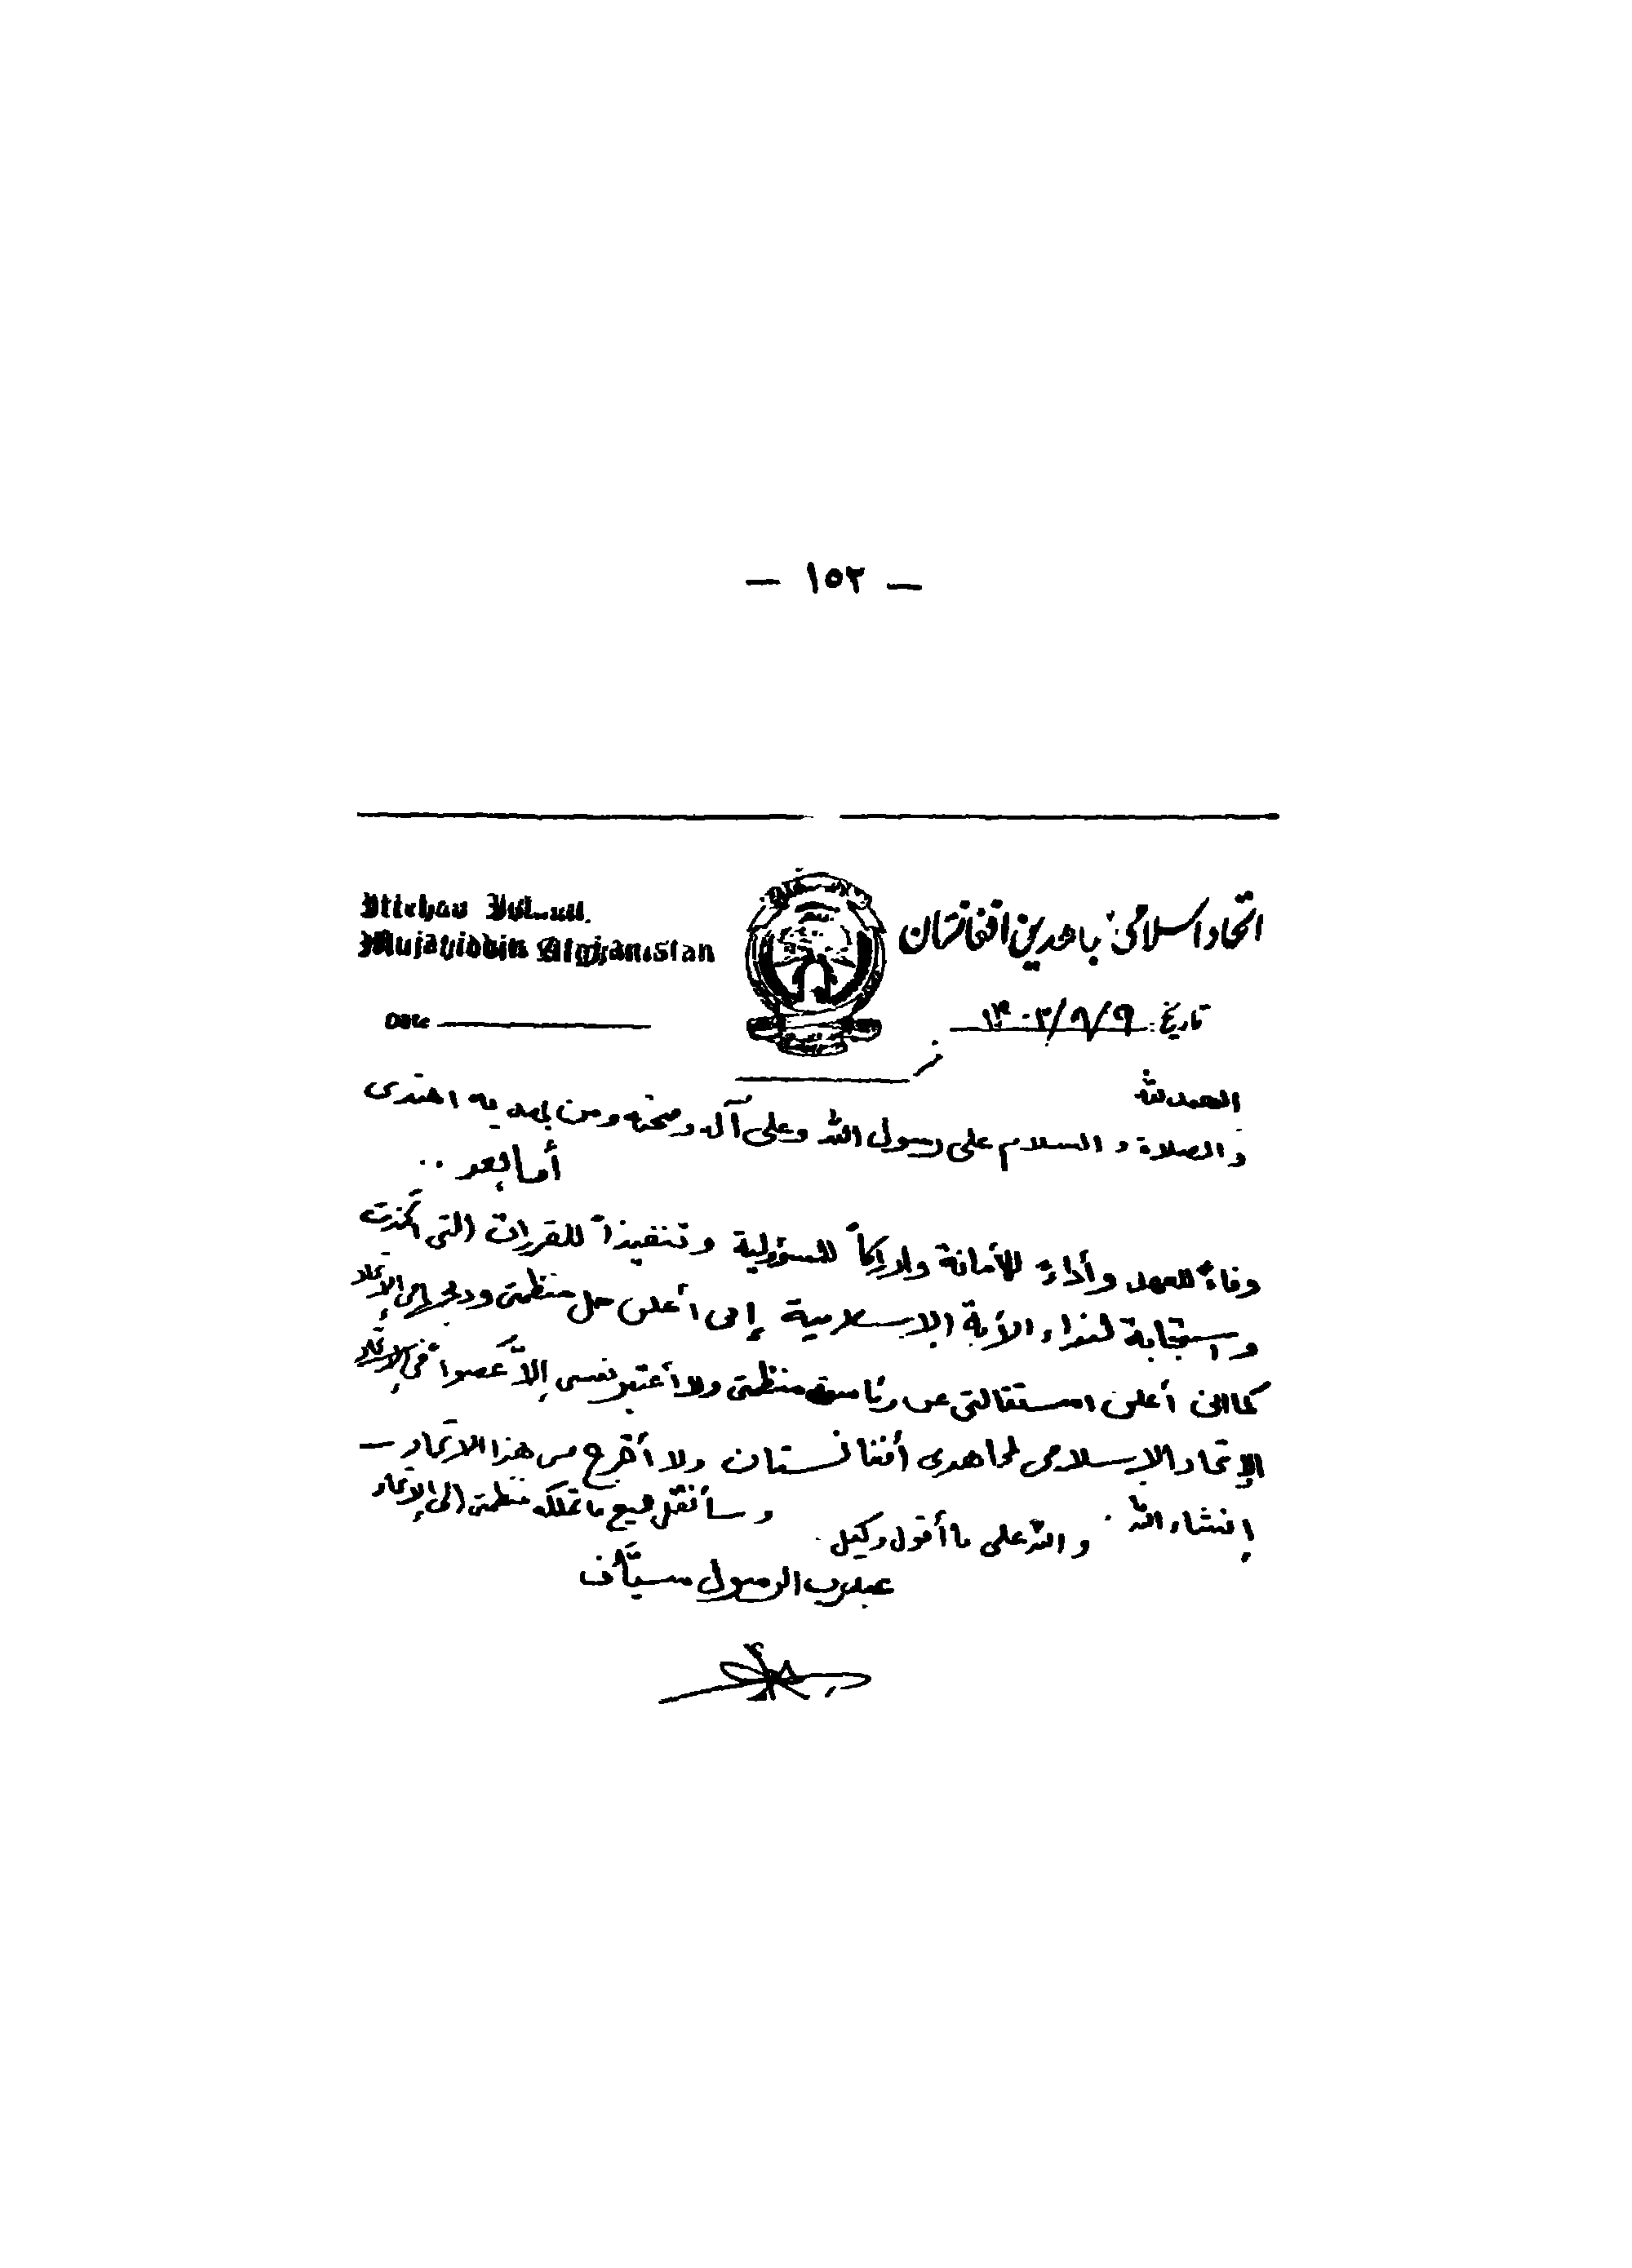 — ١٥٢ —
اتحاد اسلامی مجاهدین افغانستان
Mujahiddin Afghanistan
تاريخ:
Date
الحمد لله
والصلاة والسلام على رسول الله وعلى آله وصحبه ومن بهديه اهتدى
أما بعد ..
وفاءً للعهد وأداءً للأمانة وإدراكاً للمسؤولية وتنفيذاً للقررات التى اتخذت
واستجابة لنداء الأمة الإسلامية إنى أعلن حل منظمتى ودمجها فى الإتحاد
كما اننى أعلن استقالتى عن رئاسة منظمتى ولا أعتبر نفسى إلا عضواً فى الإتحاد
الإتحاد الإسلامى لمجاهدى أفغانستان ولا أخرج من هذا الاتحاد —
إنشاء الله . وسأنقل جميع ما تملكه منظمتى إلى الإتحاد
والله على ما أقول وكيل .
عبدرب الرسول سيّاف